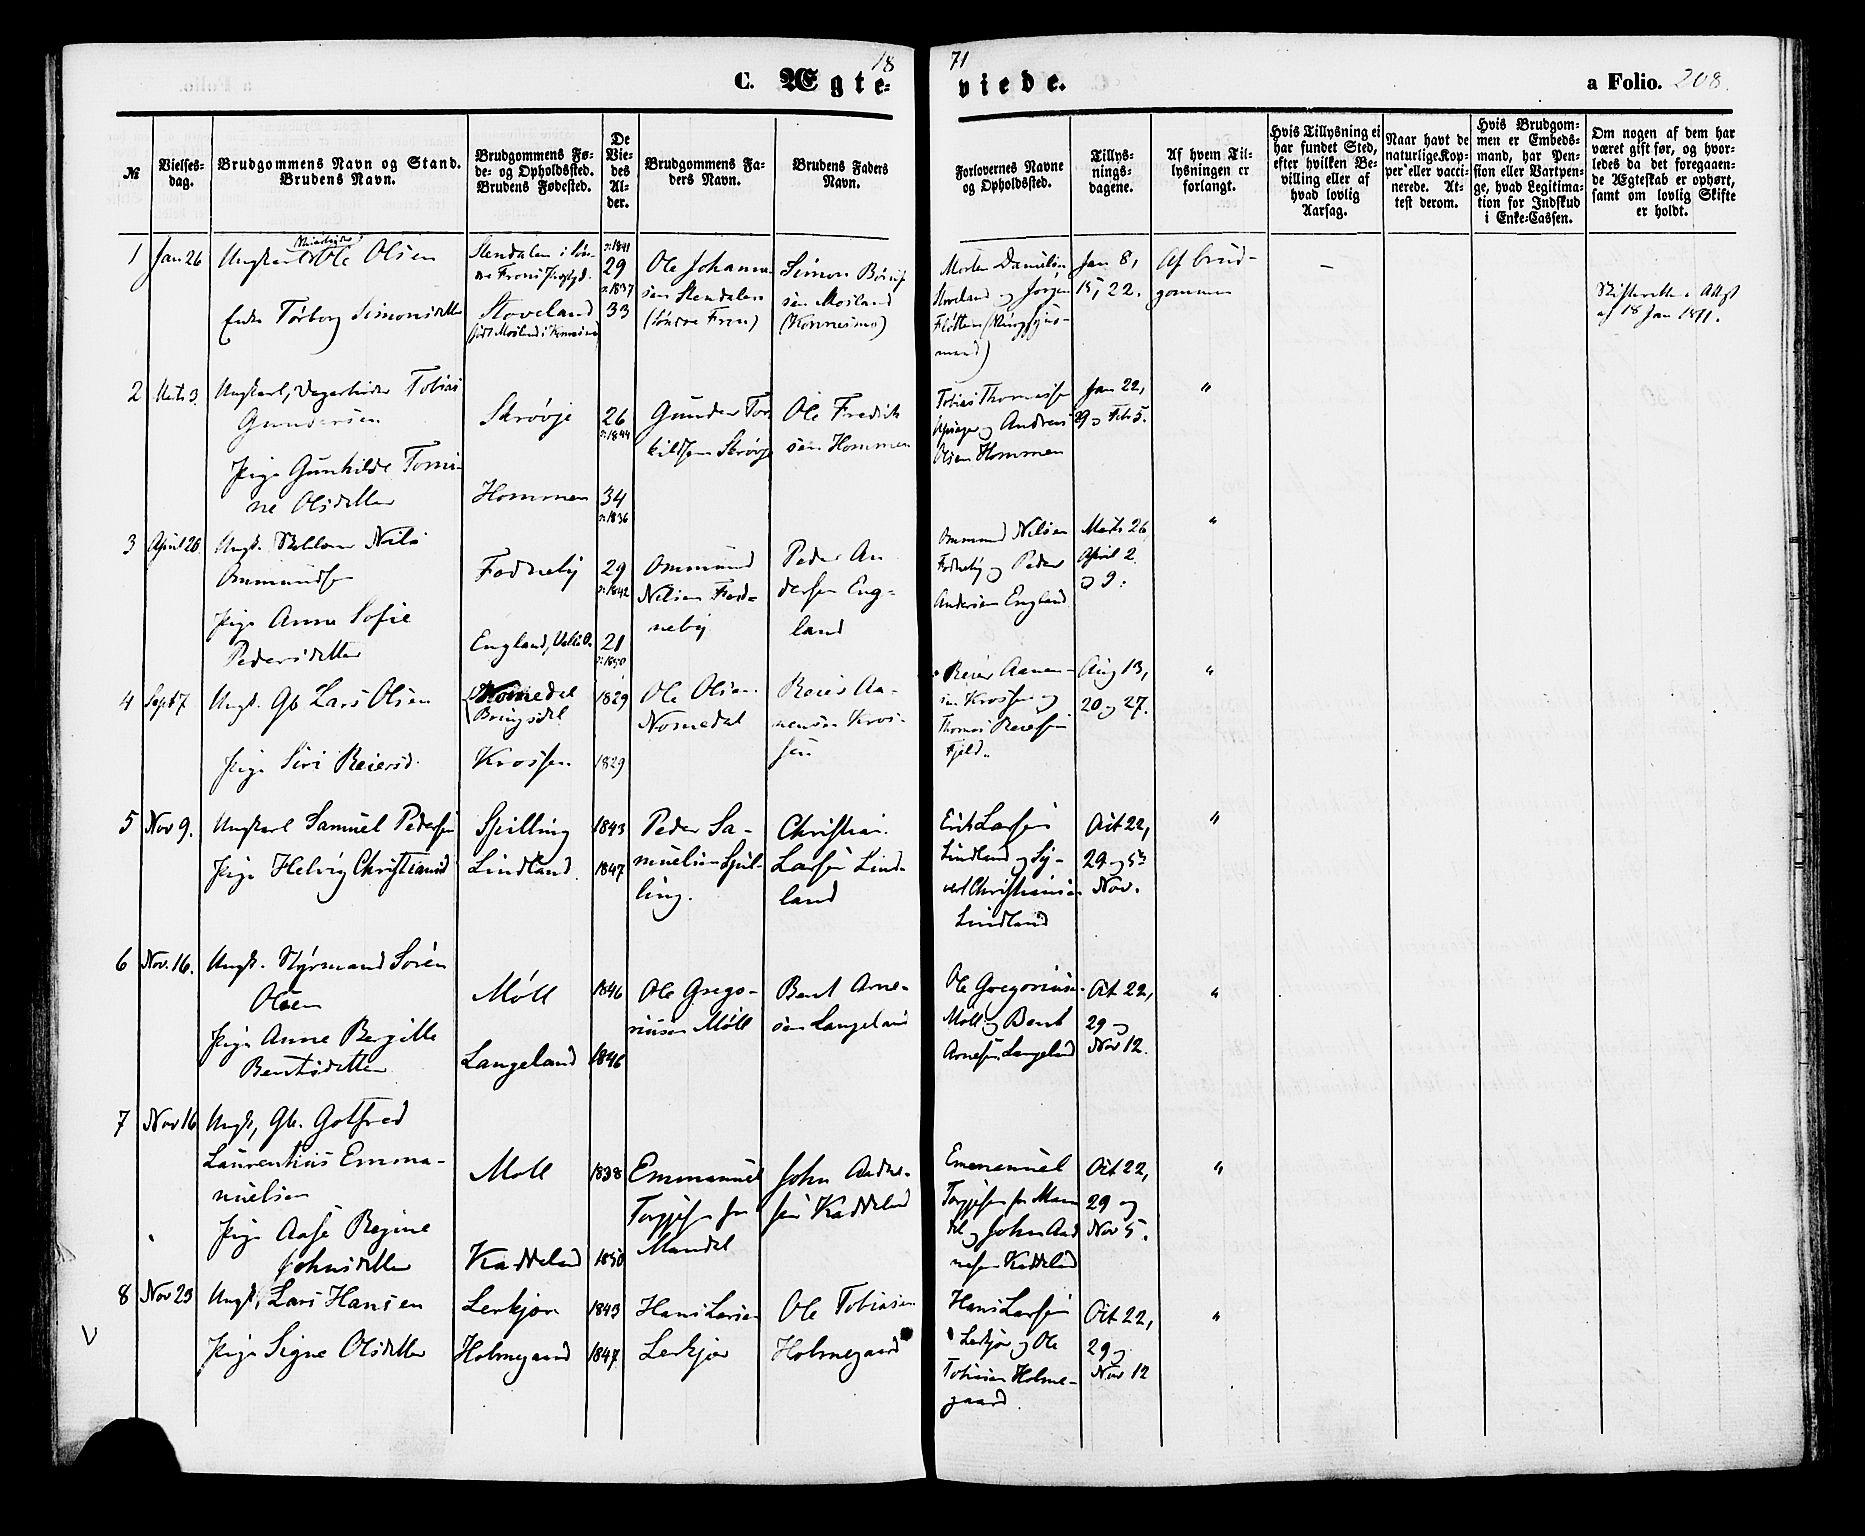 18 71
C. Ægte- viede. a Folio. 208.
№
Vielses-
dag.
Brudgommens Navn og Stand.
Brudens Navn.
Brudgommens Fø-
de- og Opholdssted.
Brudens Fødested.
De
Vie-
des
Al-
der.
Brudgommens Fa-
ders Navn.
Brudens Faders
Navn.
Forlovernes Navne
og Opholdssted.
Tillys-
nings-
dagene.
Af hvem Til-
lysningen er
forlangt.
Hvis Tillysning ei
har fundet Sted,
efter hvilken Be-
villing eller af
hvad lovlig
Aarsag.
Naar havt de
naturlige Kop-
per eller vacci-
nerede. At-
test derom.
Hvis Brudgom-
men er Embeds-
mand, har Pen-
sion eller Vartpen-
ge, hvad Legitima-
tion for Indskud
i Enke-Cassen.
Om nogen af dem har
været gift før, og hvor-
ledes da det foregaaen-
de Ægteskab er ophørt,
samt om lovlig Skifte
er holdt.
1
Jan 26
Ungkarl Ole Olsen
Enke Torborg Simonsdatter
Stendalen i Søn-
dre Frons Prgjld.
Stoveland
(født Mosland i Konnesmo)
f. 1841
29
f. 1837
33
Ole Johanne-
sen Stendalen
(Søndre Fron)
Simon Børuf-
sen Mosland
(Konnesmo)
Morten Danielsen
Stoveland og Jørgen
Fløttum (Ringsjus-
mand)
Jan 8,
15, 22.
Af brud-
gommen
–
Skifteretten Attest
af 18 Jan 1871.
2
Marts 3
Ungkarl, Vegarbeider Tobias
Gundersen
Pige Gunhilde Tomi-
ne Olsdatter
Skrøvje
Hommen
26
f. 1844
34
f. 1836
Gunder Tor-
kildsen Skrøvje
Ole Fredrik-
sen Hommen
Tobias Thomassen
og Andreas
Olsen Hommen
Jan 22,
29 og Feb 5.
"
3
April 20
Ungk. Nils
Ommundsen
Pige Anne Sofie
Pedersdatter
Fodneby
England,
29
f. 1842
21
f. 1850
Ommund
Nilsen Fod-
neby
Peder An-
dersen Eng-
land
Ommund Nilsen
Fodneby og Peder
Andersen England
Marts 26
April 2
og 9.
"
4
Sept 7
Ungk. Gb Lars Olsen
Pige Siri Reiersd.
Nomedal
Bringsdal
Krossen
1829
1829
Ole Olsen
Nomedal
Reier Aa-
nensen Kros-
sen
Reier Aanen-
sen Krossen og
Thomas Reiersen
Fjeld.
Aug 13,
20 og 27.
"
5
Nov 9.
Ungkarl Samuel Pedersen
Pige Helvig Christiansd
Spilling
Lindland.
1843
1847
Peder Sa-
muelsen Spil-
ling.
Christian
Larsen Lind-
land
Erik Larsen
Lindland og Sy-
vert Christiansen
Lindland
Oct 22,
29 og 5te
Nov.
"
6
Nov. 16.
Ungk. Styrmand Søren
Olsen
Pige Anne Bergitte
Bentsdatter
Møll
Langeland
1846
1846
Ole Grego-
riusen Møll
Bent Arne-
sen Langeland
Ole Gregoriusen
Møll og Bent
Arnesen Langeland
Oct 22,
29 og
Nov 12.
"
7
Nov 16
Ungk, Gb. Gotfred
Laurentius Emma-
nuelsen
Pige Aase Regine
Johnsdatter
Møll
Kaddeland
1838
1850
Emmanuel
Torgjusen fra
Mandal
John Andre-
sen Kaddeland
Emmanuel
Torgjusen fra Man-
dal og John And-
resen Kaddeland
Oct 22,
29 og
Nov 5.
"
8
Nov 23
Ungk, Lars Hansen
Pige Signe Olsdatter
Lerkjær
Holmegaard
1843
1847
Hans Larsen
Lerkjær
Ole Tobiasen
Holmegaard
Hans Larsen
Lerkjær og Ole
Tobiasen Holme-
gaard
Oct 22,
29 og
Nov 12
"
V